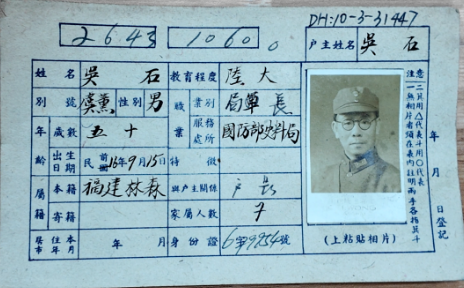 DH:10-3-31447
2643 1060 0
戶主姓名 吳石
姓名 吳石 教育程度 陸大
別號 虞薰 性別 男 職業 業別 局單長
年齡 歲數 五十 服務處所 國防部史料局
出生日期 民前國16年9月15日 特徵
屬籍 本籍 福建林森 與戶主關係 戶長
寄籍 家屬人數 7
居本市住年月 年 月 身份證 6字9254號
(上粘貼相片)
注意
一無相片者須在表內註明兩手各指箕斗
二箕用△代表斗用○代表
年 月 日登記